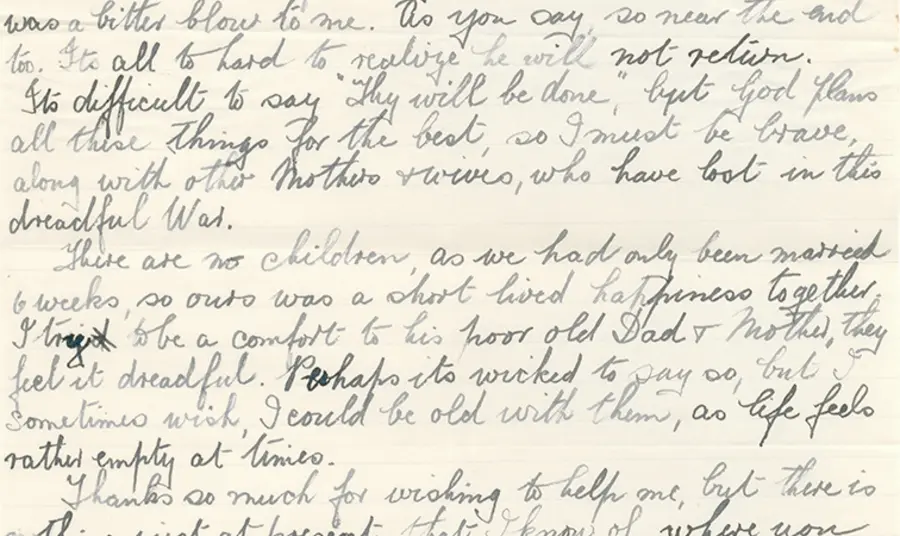 was a bitter blow to me. As you say, so near the end
too. Its all to hard to realize he will not return.
Its difficult to say "Thy will be done", but God plans
all these things for the best, so I must be brave,
along with other Mothers & wives, who have lost in this
dreadful War.
There are no children, as we had only been married
6 weeks, so ours was a short lived happiness together.
I try to be a comfort to his poor old Dad & Mother, they
feel it dreadful. Perhaps its wicked to say so, but I
sometimes wish, I could be old with them, as life feels
rather empty at times.
Thanks so much for wishing to help me, but there is
just at present, that I know of, where you